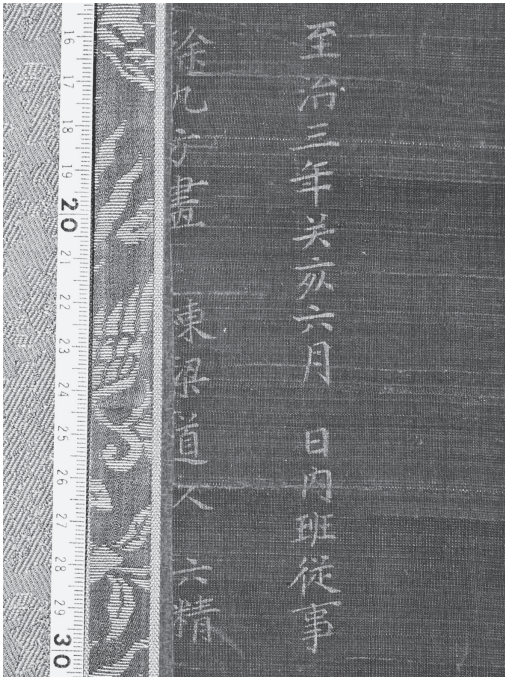 至治三年癸亥六月 日內班從事
徐九方畫 棟梁道人 六精
16
17
18
19
20
21
22
23
24
25
26
27
28
29
30